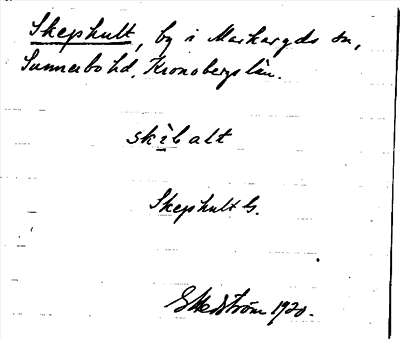 Skephult, by i Markaryds sn,
Sunnerbo hd, Kronobergs län.
skìbalt
Skephult G.
1920.